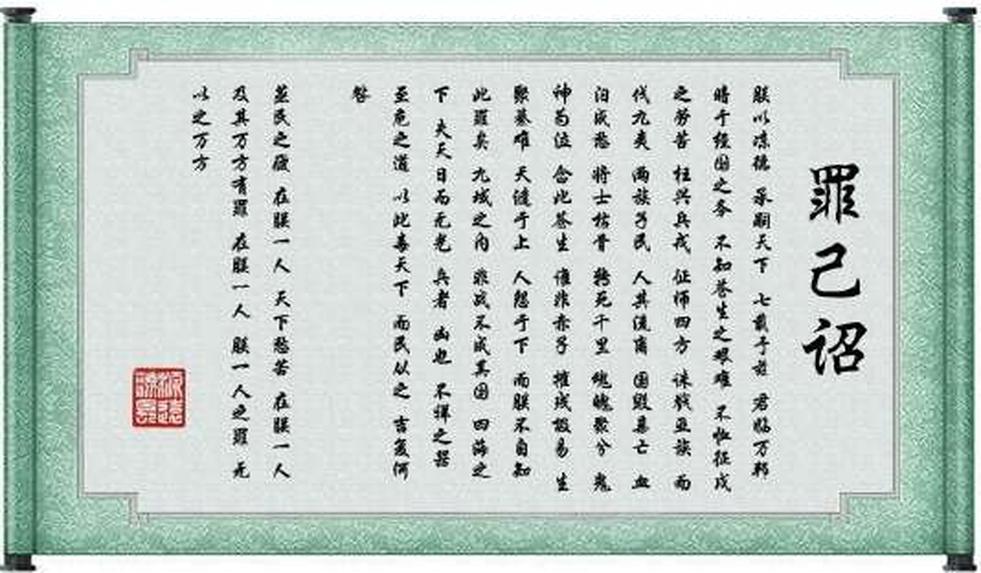 罪己诏
朕以凉德 承嗣天下 七载于兹 君临万邦
暗于经国之务 不知苍生之艰难 不恤征戍
之劳苦 枉兴兵戎 征师四方 诛戮亚族 而
伐九夷 两族子民 人其流离 国毁墓亡 血
泊成愁 将士枯骨 转死千里 魂魄聚兮 鬼
神为泣 念此苍生 谁非赤子 摧残假易 生
聚甚难 天谴于上 人怨于下 而朕不自知
此罪矣 九域之内 非战不成其国 四海之
下 夫天日而无光 兵者 凶也 不祥之器
至危之道 以此毒天下 而民从之 吉复何
咎
蒸民之疲 在朕一人 天下愁苦 在朕一人
及其万方有罪 在朕一人 朕一人之罪 无
以之万方